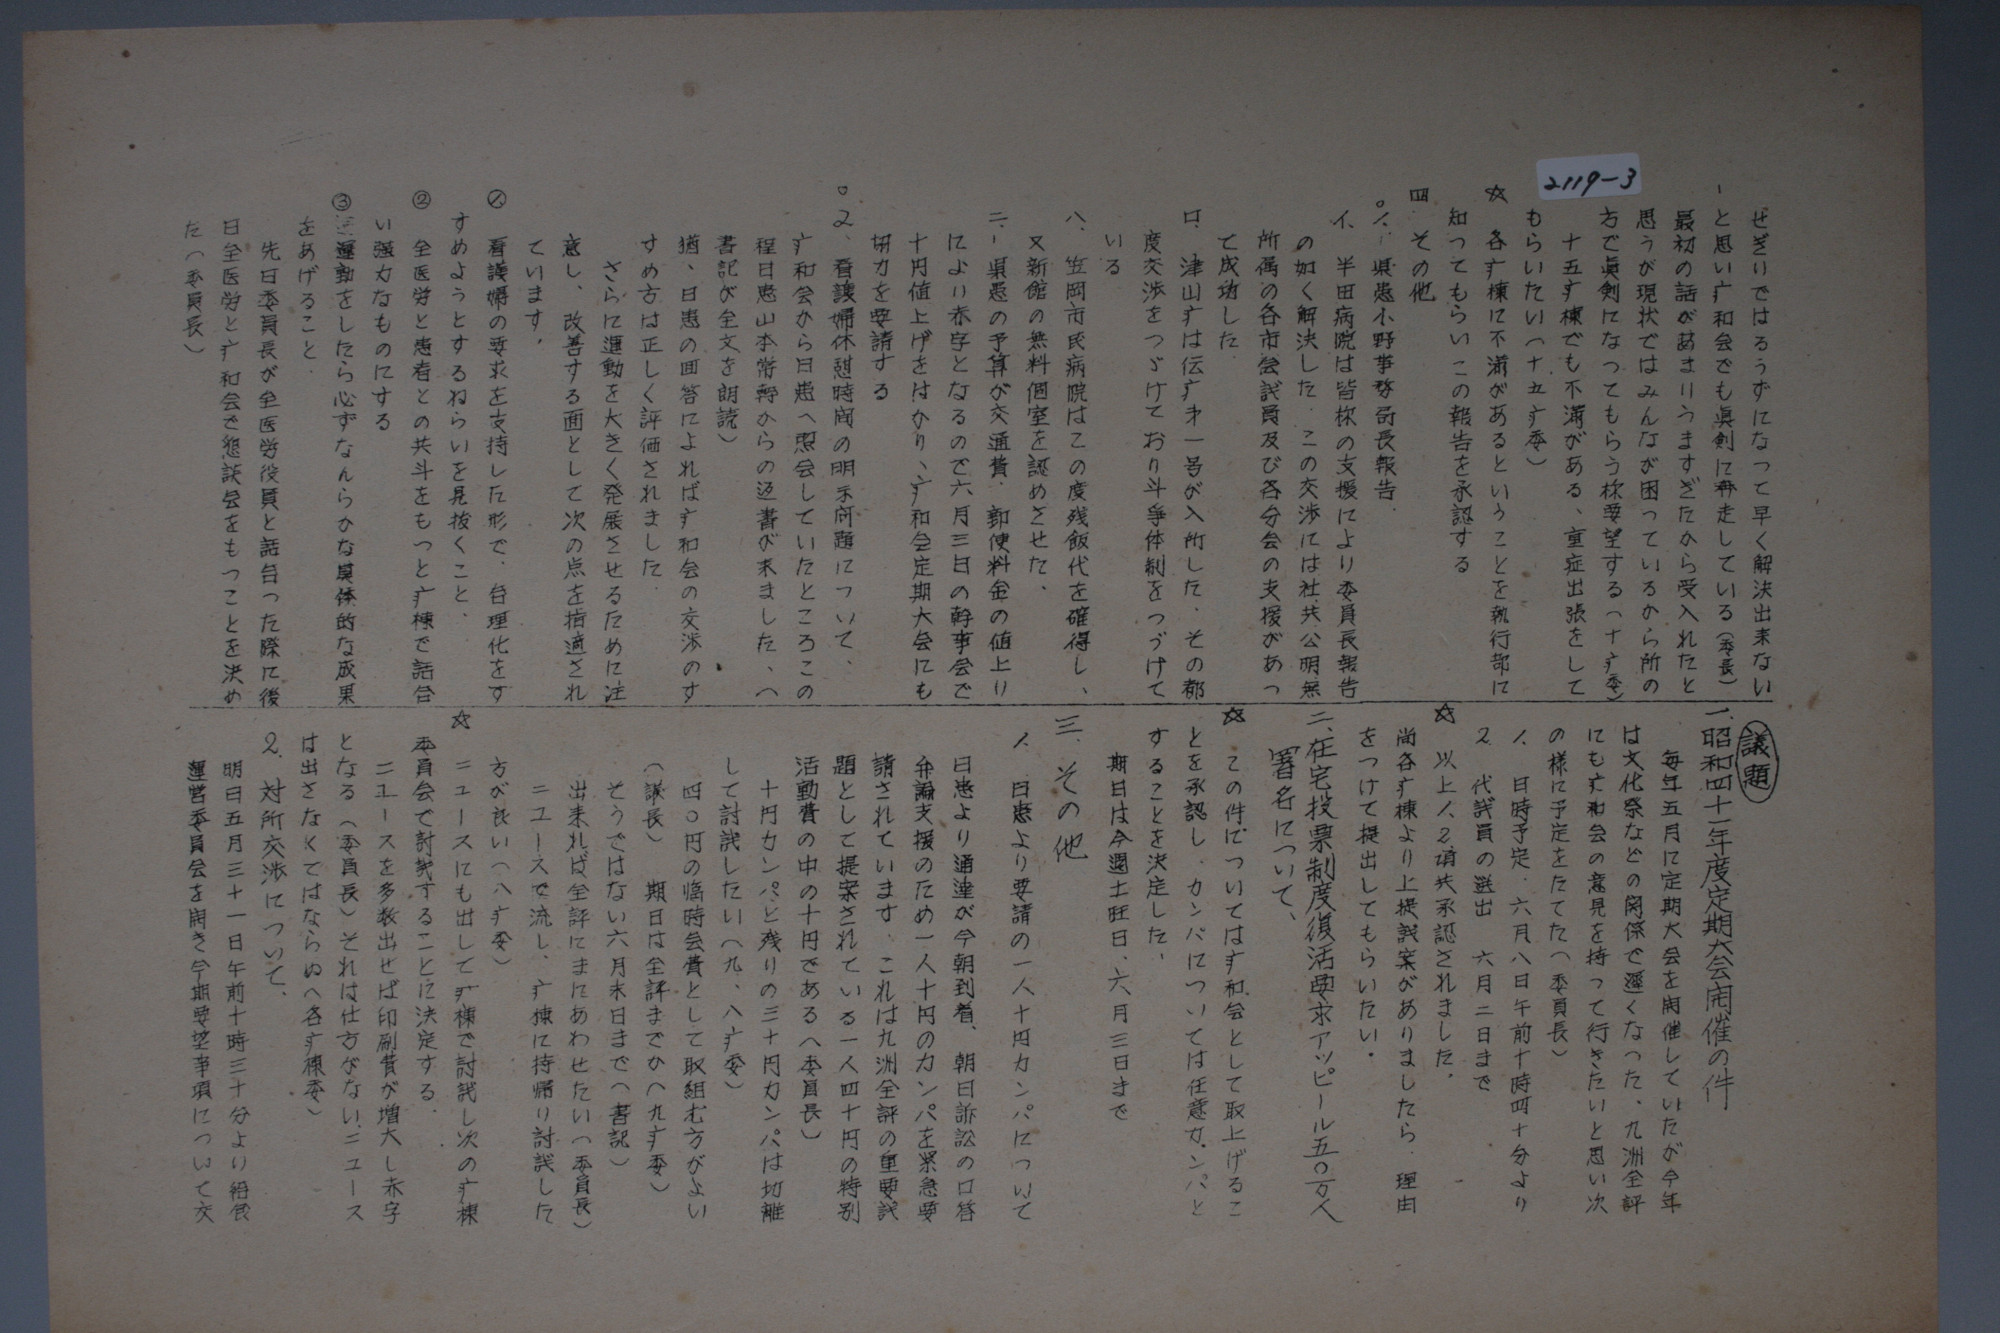 2119-3
ぜぎりではるうずになって早く解決出来ない
と思い疒和会でも真剣に再走している(委長)
最初の話があまりうますぎたから受入れたと
思うが現状ではみんなが困っているから所の
方で真剣になってもらう様要望する(十疒委)
十五疒棟でも不満がある、重症出張をして
もらいたい(十五疒委)
☆ 各疒棟に不満があるということを執行部に
知ってもらいこの報告を承認する
四 その他
○1. 県患小野事務局長報告.
イ. 半田病院は皆様の支援により委員長報告
の如く解決した. この交渉には社.共.公明無
所属の各市会試員及び各分会の支援があっ
て成功した.
ロ. 津山疒は伝疒才一号が入所した. その都
度交渉をつゞけており斗争体制をつゞけて
いる
ハ、笠岡市民病院はこの度残飯代を確得し、
又新館の無料個室を認めさせた、
二.県患の予算が交通費.郵便料金の値上り
により赤字となるので六月三日の幹事会で
十円値上げをはかり、疒和会定期大会にも
切力を要請する
○2、看護婦休憩時间の明示问題について、
疒和会から日患へ照会していたところこの
程日患山本常幹からの返書が来ました、(
書記が全文を朗読)
猶、日患の回答によれば疒和会の交渉のす
すめ方は正しく評価されました.
さらに運動を大きく発展させるために注
意し、改善する面として次の点を指適され
ています,
① 看護婦の要求を支持した形で、合理化をす
すめようとするねらいを見抜くこと.
② 全医労と患者との共斗をもつと疒棟で話合
い強力なものにする
③ 運動をしたら心ずなんらかな具体的な成果
をあげること.
先日委員長が全医労役員と話合った際に後
日全医労と疒和会で懇談会をもつことを決め
た(委員長)
議題
一.昭和四十一年度定期大会开催の件
毎年五月に定期大会を開催していたが今年
は文化祭などの関係で遅くなった.九洲全評
にも疒和会の意見を持って行きたいと思い次
の様に予定をたてた(委員長)
1. 日時予定.六月八日午前十時四十分より
2. 代試員の選出 六月二日まで
☆ 以上1.2項共承認されました.
尚各疒棟より上提試案がありましたら.理由
をつけて提出してもらいたい.
二、在宅投票制度復活要求アッピール五〇万人
署名について、
☆ この件については疒和会として取上げるこ
とを承認し.カンパについては任意カンパと
することを決定した.
期日は今週土旺日、六月三日まで
三.その他
1. 日患より要請の一人十円カンパについて
日患より通達が今朝到着、朝日訴訟の口答
弁論支援のため一人十円のカンパを緊急要
請されています.これは九洲全評の重要試
題として提案されている一人四十円の特別
活動費の中の十円である(委員長)
十円カンパと残りの三十円カンパは切離
して討試したい(九、八疒委)
四〇円の臨時会費として取組む方がよい
(議長) 期日は全評までか(九疒委)
そうではない六月末日まで(書記)
出来れば全評にまにあわせたい(委員長)
ニユースで流し、疒棟に持帰り討試した
方が良い(八疒委)
☆ ニユースにも出して疒棟で討試し次の疒棟
委員会で討試することに決定する.
ニユースを多数出せば印刷費が増大し赤字
となる(委員長)それは仕方がないニユース
は出さなくてはならぬ(各疒棟委)
2. 対所交渉について、
明日五月三十一日午前十時三十分より給食
運営委員会を開き今期要望事項について交